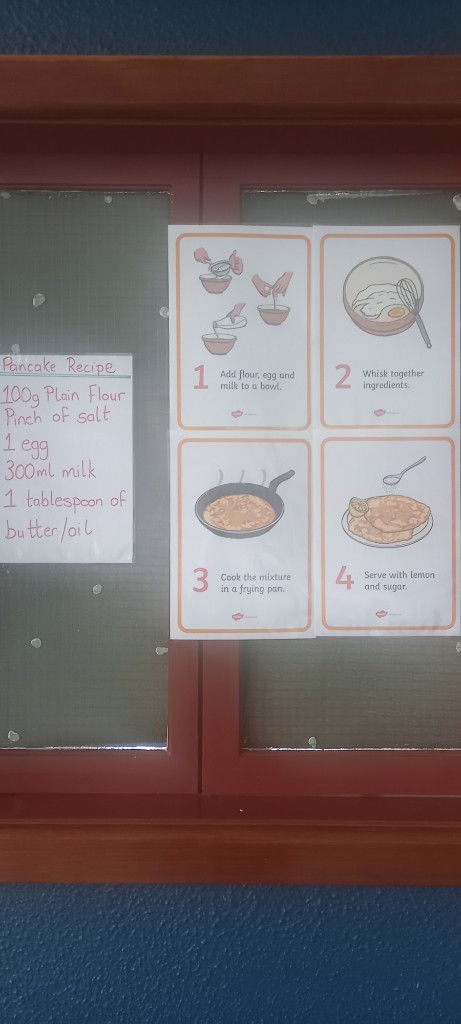 Pancake Recipe
100g Plain Flour
Pinch of salt
1 egg
300ml milk
1 tablespoon of
butter/oil
1 Add flour, egg and
milk to a bowl.
2 Whisk together
ingredients.
3 Cook the mixture
in a frying pan.
4 Serve with lemon
and sugar.